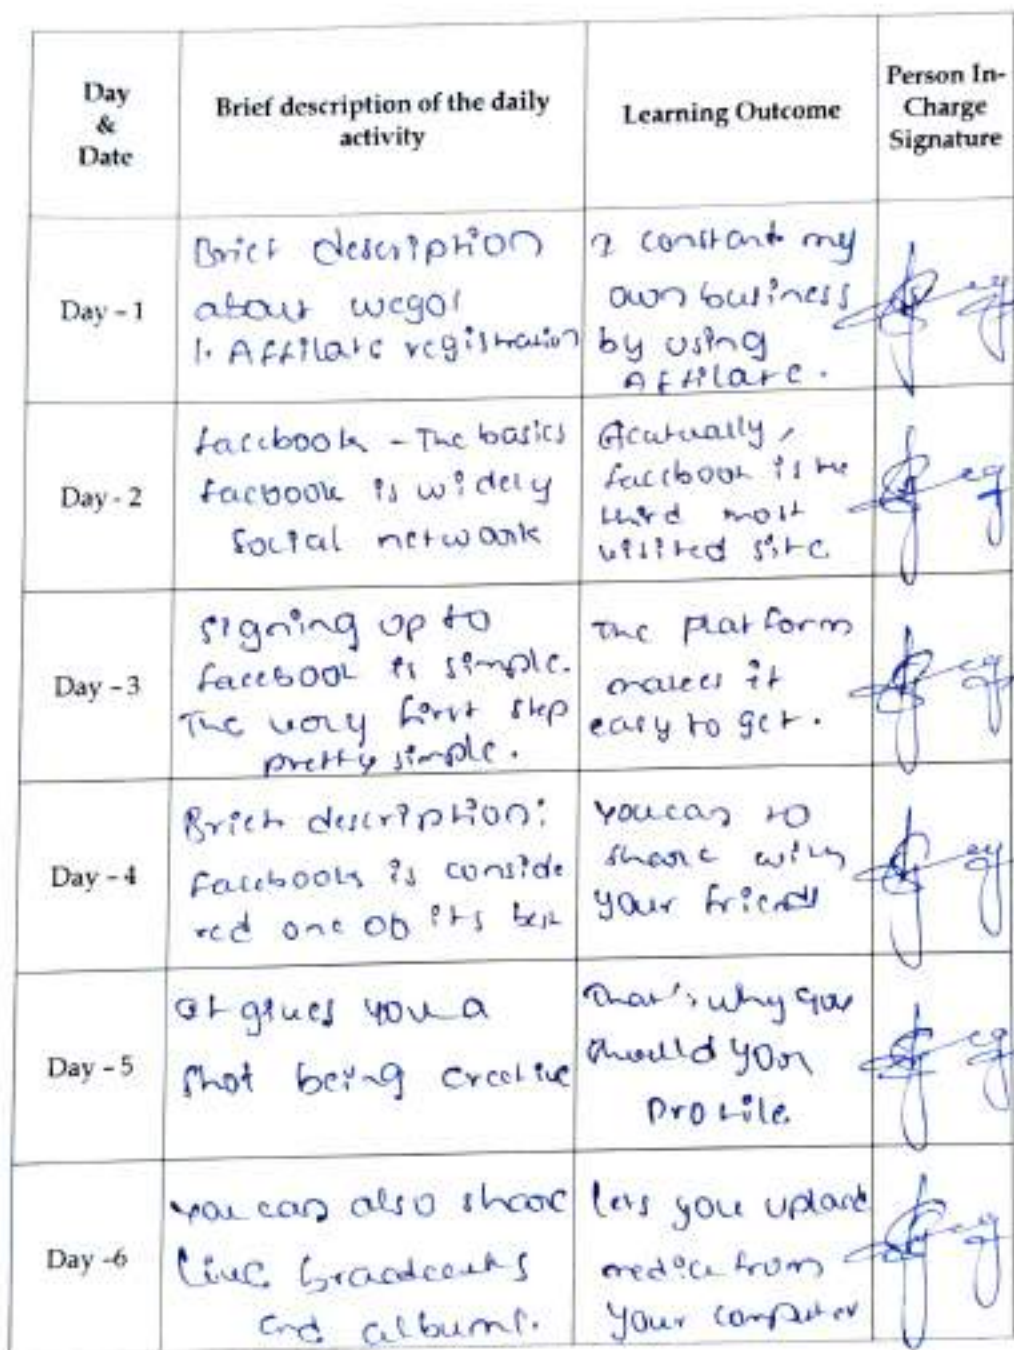 Day
&
Date
Brief description of the daily
activity
Learning Outcome
Person In-
Charge
Signature
Day - 1
Brief description
about wego!
1. Affilate registration
I constant my
own business
by using
Affilate.
Day - 2
facebook - The basics
facbook is widely
social netwoark
Acatually,
faccbook is the
third most
visited site
Day - 3
signing up to
facebook is simple.
The very first step
pretty simple.
The platform
makes it
easy to get.
Day - 4
Brief description:
facebook is conside
red one of its best
You can to
share with
your friends
Day - 5
It gives you a
shot being creative
That's why you
should your
profile
Day -6
you can also share
live broadcasts
and albums.
lets you upload
media from
your computer